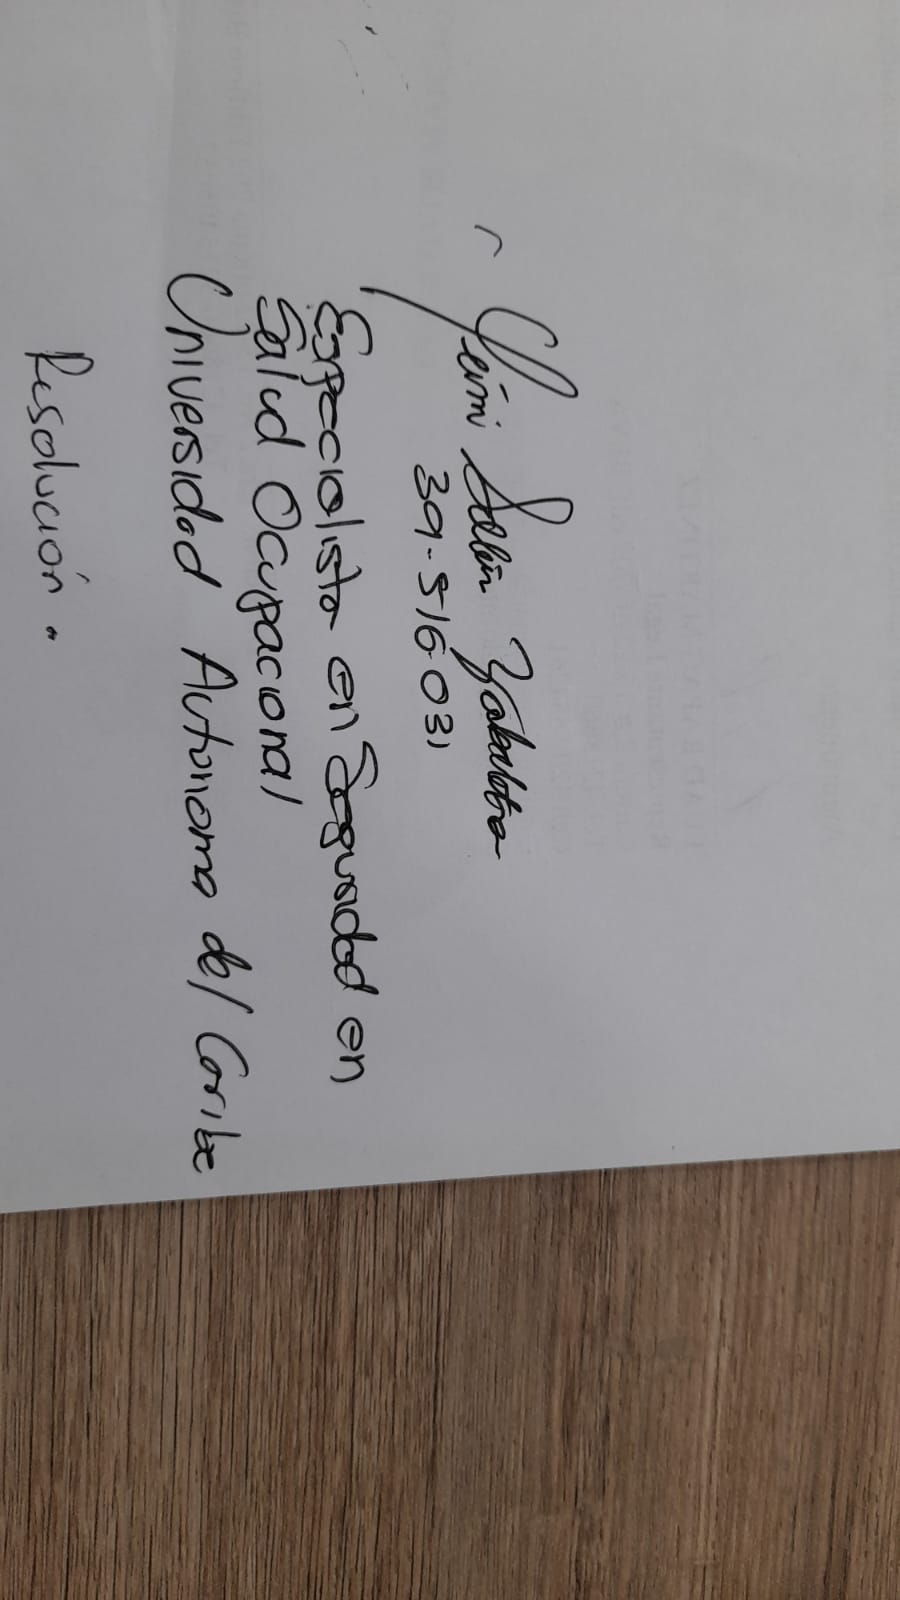 Yeimi
39-516031
Especialista en Seguridad en
Salud Ocupacional
Universidad Autonoma del Caribe
Resolución.